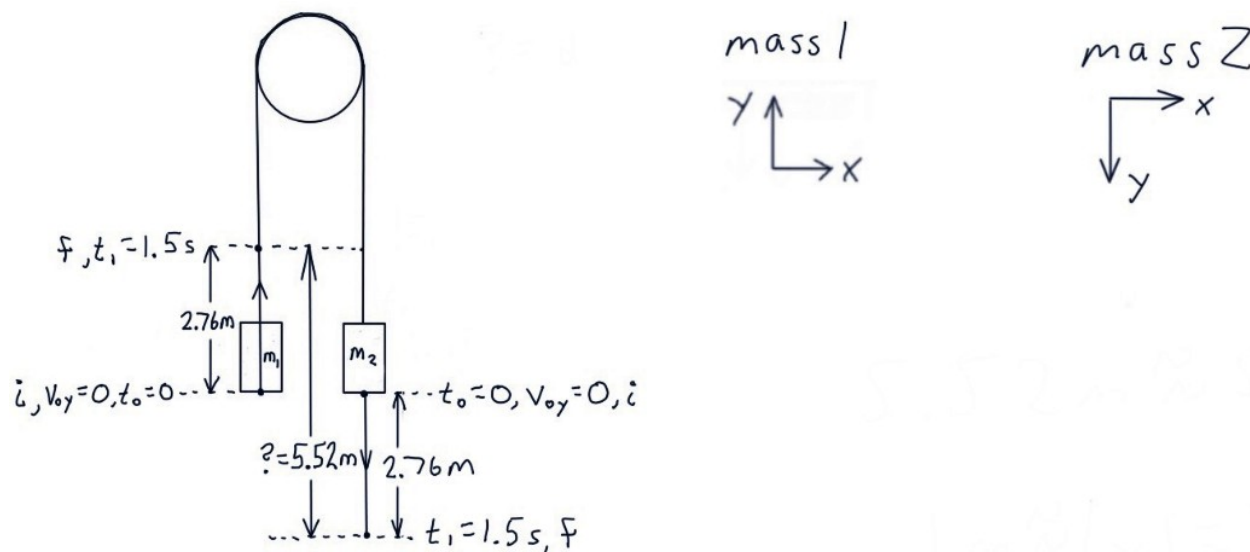 mass 1
mass 2
y
x
x
y
f, t₁=1.5s
2.76m
m₁
m₂
i, v₀y=0, t₀=0
t₀=0, v₀y=0, i
?=5.52m
2.76m
t₁=1.5s, f